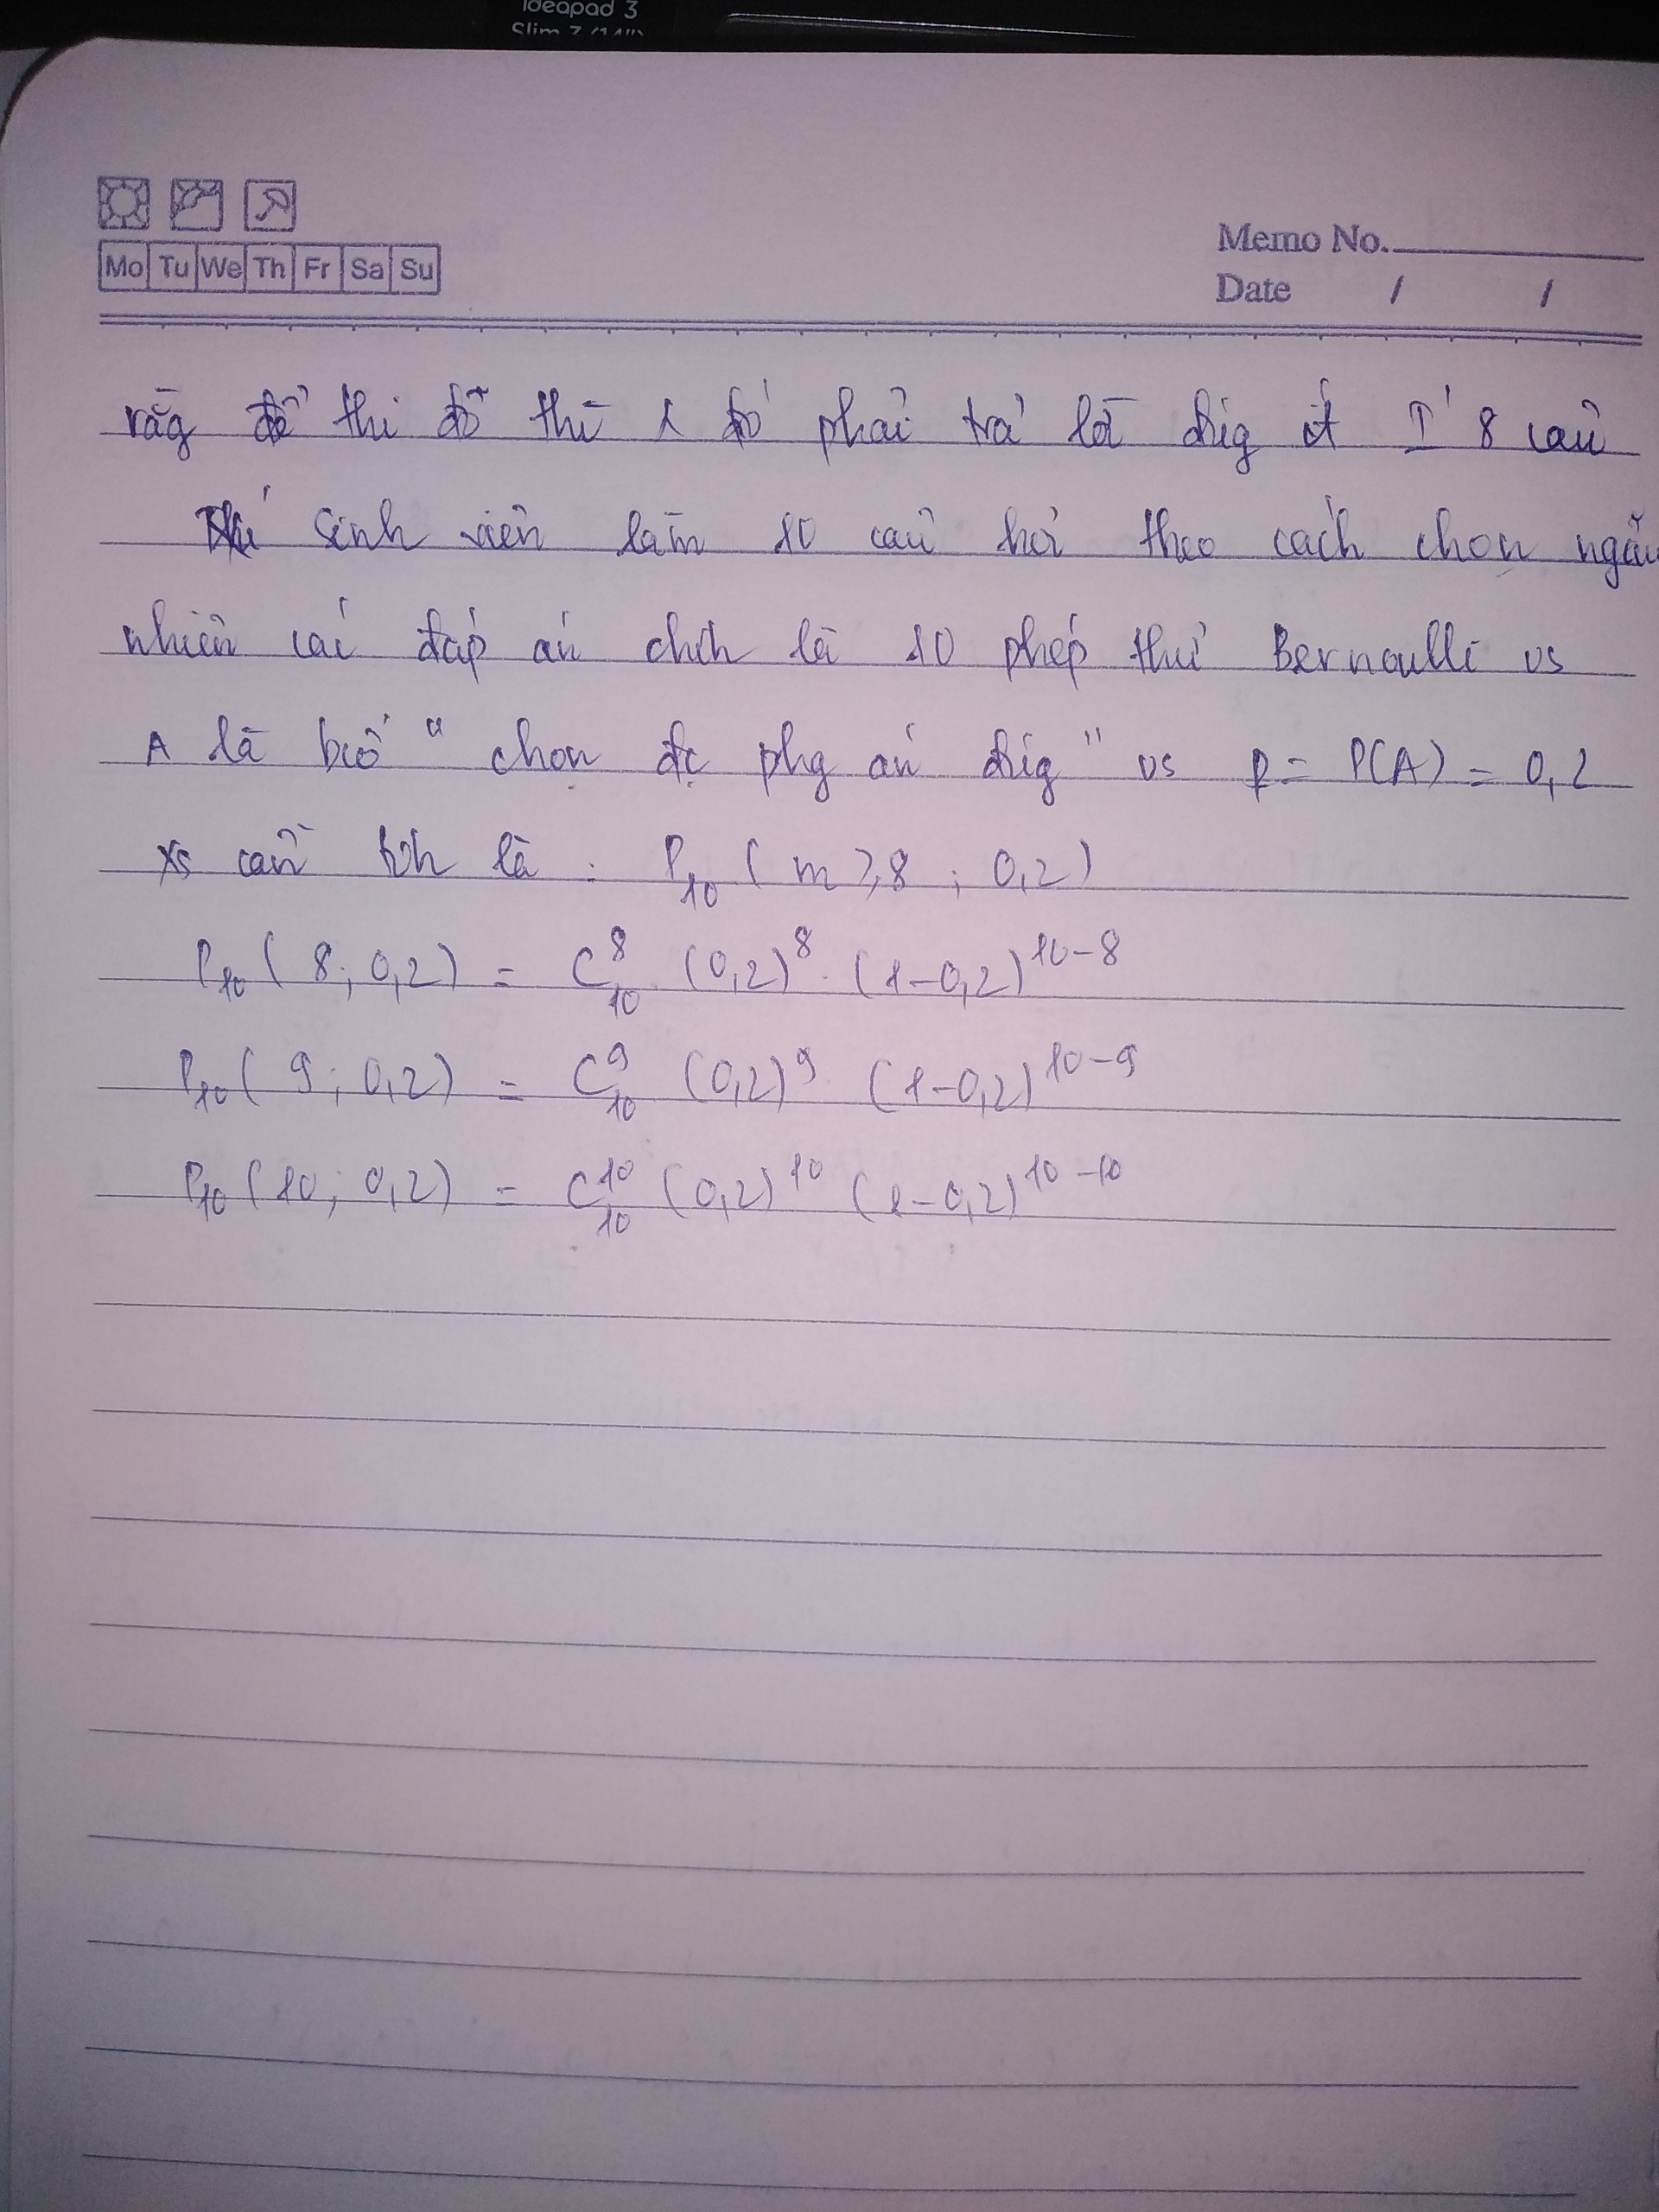 ideapad 3
Slim 7 (14")
Mo Tu We Th Fr Sa Su
Memo No.
Date / /
rằg để thi đỗ thì phải trả lời đúg ít I' 8 câu
sinh viên làm 10 câu hỏi theo cách chọn ngẫu
nhiên các đáp án chíh là 10 phép thử Bernoulli vs
A là b/cố " chọn đc phg án đúg " vs p = P(A) = 0,2
xs cần tíh là : P₁₀ ( m ≥ 8 ; 0,2)
P₁₀ ( 8 ; 0,2) = C₁₀⁸ (0,2)⁸ . (1-0,2)¹⁰⁻⁸
P₁₀ ( 9 ; 0,2) = C₁₀⁹ (0,2)⁹ (1-0,2)¹⁰⁻⁹
P₁₀ (10 ; 0,2) = C₁₀¹⁰ (0,2)¹⁰ (1-0,2)¹⁰⁻¹⁰